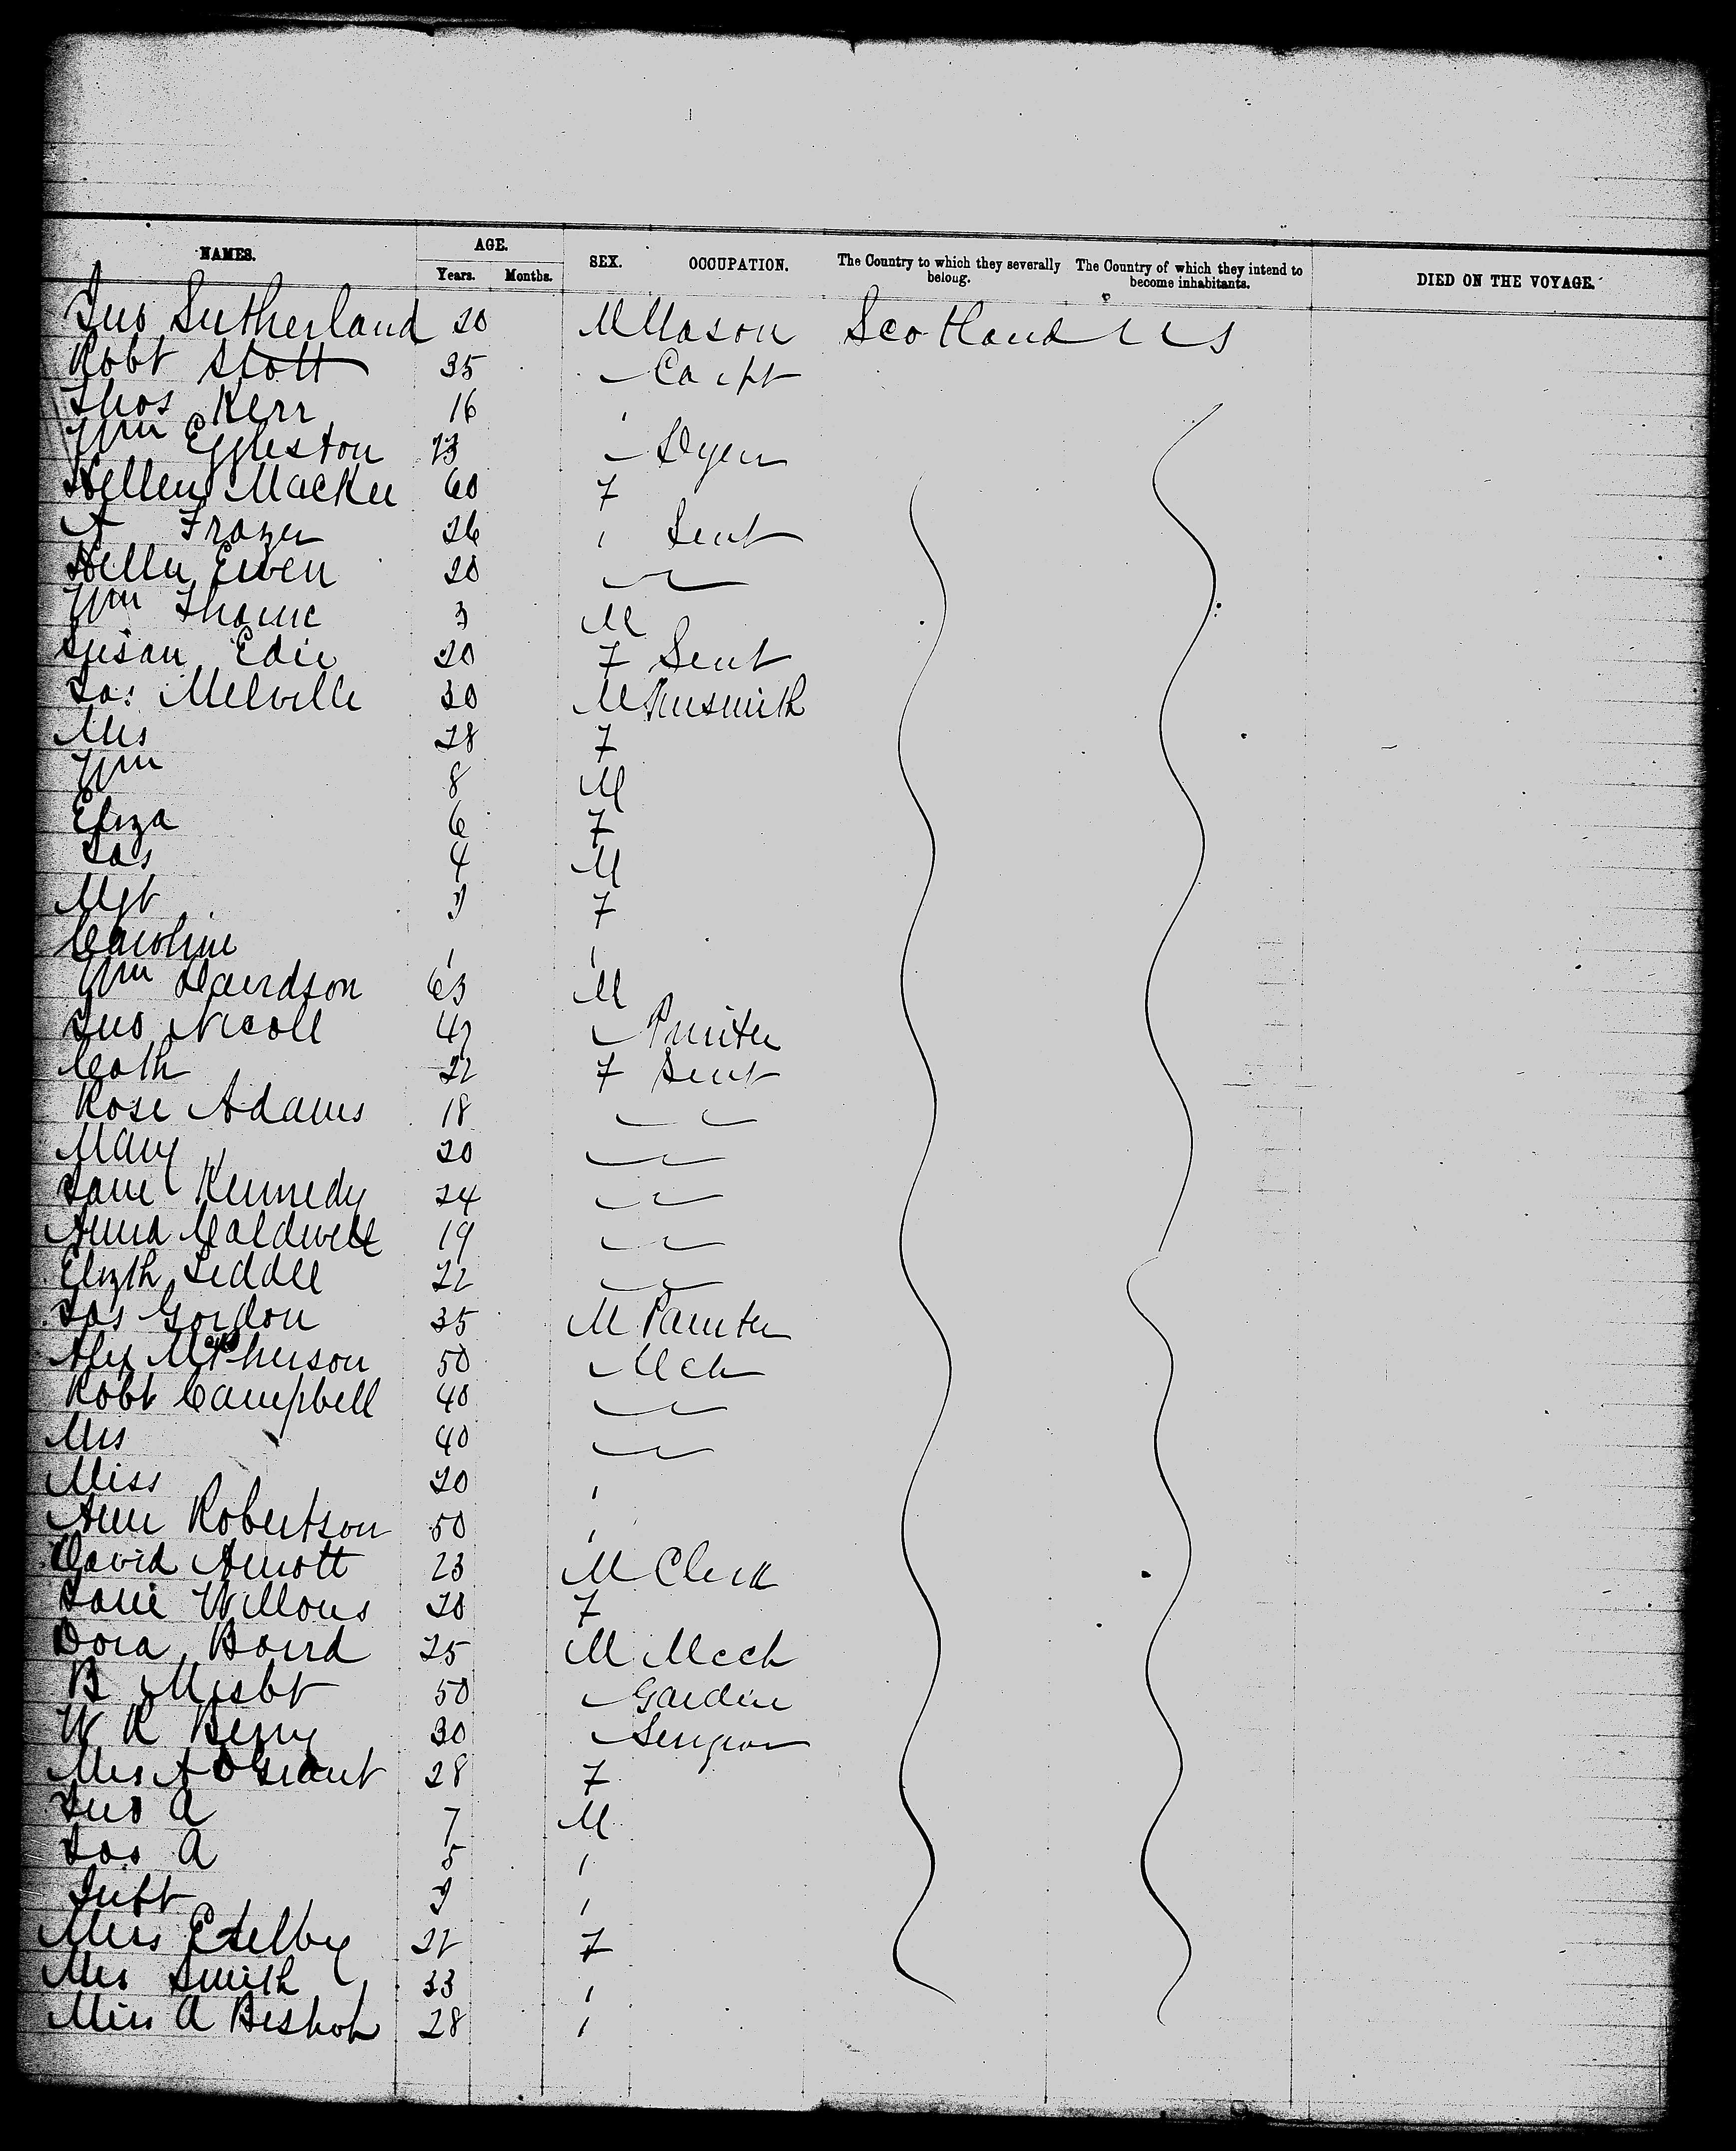 NAMES. AGE. SEX. OCCUPATION. The Country to which they severally belong. The Country of which they intend to become inhabitants. DIED ON THE VOYAGE.
Years. Months.
Jno Sutherland 20 M Mason Scotland U S
Robt Stott 35 Carpt
Thos Kerr 16
Wm Eggleston 23 Dyer
Hellen MacKee 60 F
A Frazer 26 Sevt
Hellen Ewen 20
Wm Thome 3 M
Susan Edie 20 F Sevt
Jas Melville 30 M Tinsmith
Mrs 28 F
Wm 8 M
Eliza 6 F
Jas 4 M
Mgt 3 F
Caroline 1
Wm Davidson 63 M
Jno Nicoll 47 Printer
Cath 22 F Sevt
Rose Adams 18
Mary 20
Jane Kennedy 24
Anna Caldwell 19
Elizth Liddle 22
Jas Gordon 35 M Painter
Alex McPherson 50 Mch
Robt Campbell 40
Mrs 40
Miss 20
Ann Robertson 50
David Arnott 23 M Clerk
Jane Willons 20 F
Dora Baird 25 M Mech
B Nisbt 50 Garden
W R Berry 30 Surgeon
Mrs A O Grant 28 F
Jno A 7 M
Jas A 5
Inft 3
Miss Edelby 22 F
Mrs Smith 33
Miss A Bishop 28